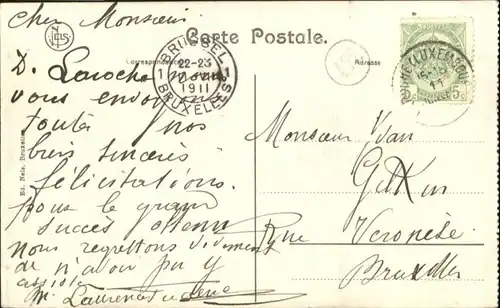 Cher Monsieur
Carte Postale.
Correspondance
Adresse
NELS
BRUSSEL
22-23
1911
BRUXELLES
(LUXEMBOURG
5c
D. Laroche nous
vous envoyons
toutes nos
bien sincères
félicitations
pour le grand
succès obtenu
Nous regrettons vivement
de n'avoir pu y
assister
Monsieur Van
Rue Veronèse
Bruxelles
Ed. Nels, Bruxelles